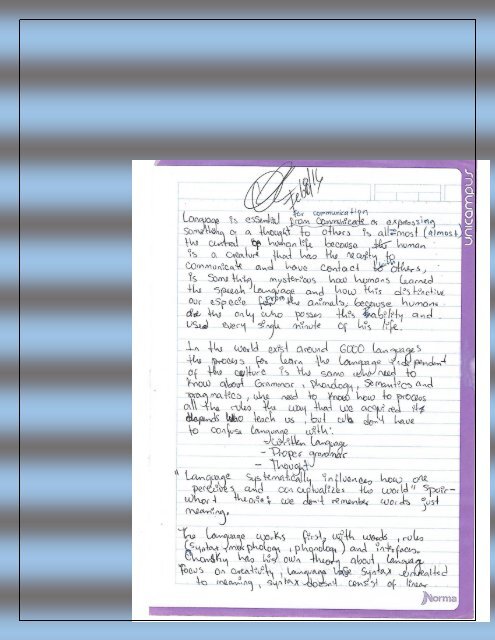 Feb 8/16
unicampus
for communication
Language is essential from communicate or expressing
something or a thought to others is allmost (almost)
the central of human life because the human
is a creature that has the necesity to
communicate and have contact to others,
is something mysterious how humans learned
the speech language and how this distinctive
our especie from the animals, because humans
are the only who posses this hability and
used every single minute of his life.
In the world exist around 6000 languages
the process for learn the language independent
of the culture is the same whe need to
know about Grammar, phonology, semantics and
pragmatics, whe need to know how to process
all the rules the way that we acquired its
depends who teach us, but we don't have
to confuse language with:
- Written Language
- Proper grammar
- Thought
"Language systematically influences how one
perceives and conceptualizes the world" Sapir-
Whorf theories we don't remember words just
meaning.
The language works first, with words, rules
(syntax, morphology, phonology) and interfaces.
Chomsky has his own theory about language
focus on creativity, language use syntax
to meaning, syntax doesn't consist of linear
Norma